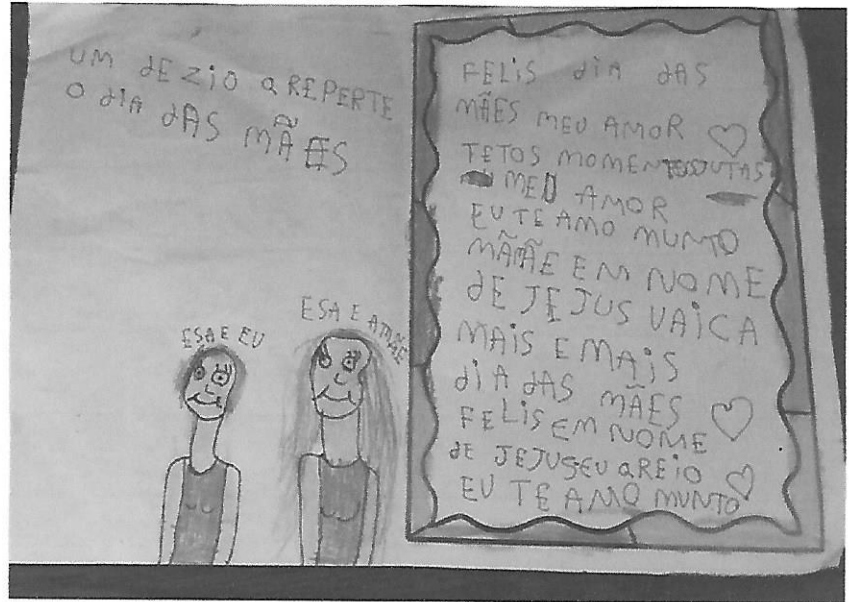 UM dEZiO QREPERTE
O diA dAS MÃES
ESA E EU
ESA E AMÃE
FELiS diA dAS
MÃES MEU AMOR
TETOS MOMENTOSJUTAS
MEU AMOR
EU TE AMO MUNTO
MÃMÃE EM NOME
dE JEJUS VAiCA
MAiS E MAiS
diA dAS MÃES
FELiS EM NOME
dE JEJUSEU QREiO
EU TE AMO MUNTO